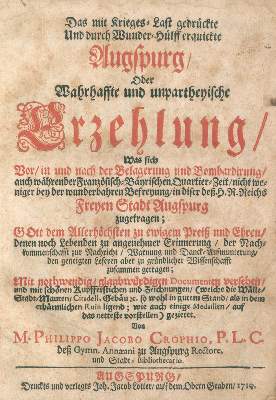 Das mit Krieges-Last gedrückte
Und durch Wunder-Hülff erquickte
Augspurg/
Oder
Wahrhaffte und unpartheyische
Erzehlung/
Was sich
Vor/ in und nach der Belagerung und Bombardirung/
auch währender Frantzösisch-Bäyrischen Quartier-Zeit/ nicht we-
niger bey der wunderbahren Befreyung/ in diser deß H. R. Reichs
Freyen Stadt Augspurg
zugetragen;
GOtt dem Allerhöchsten zu ewigem Preiß und Ehren/
denen noch Lebenden zu angenehmer Erinnerung/ der Nach-
kommenschafft zur Nachricht/ Warnung und Danck-Aufmunterung/
den geneigten Lesern aber zu gründlicher Wissenschafft
zusammen getragen;
Mit nothwendig/ glaubwürdigen Documenten versehen/
und mit schönen Kupfferstichen und Zeichnungen/ (welche die Wälle/
Stadt-Mauren/ Citadell, Gebäu &c. so wohl in gutem Stand/ als in dem
erbärmlichen Ruin ligend; wie auch einige Medaillen/ auf
das netteste vorstellen) gezieret.
Von
M. PHILIPPO JACOBO CROPHIO, P. L. C.
deß Gymn. Annæani zu Augspurg Rectore,
und Stadt-Bibliothecario.
AUGSPURG/
Druckts und verlegts Joh. Jacob Lotter/ auf dem Obern Graben/ 1710.